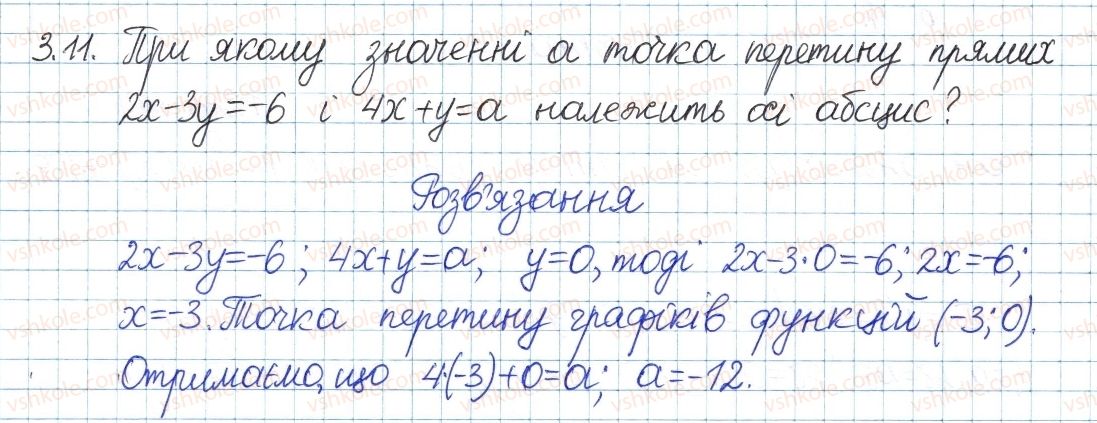 3.11. При якому значенні a точка перетину прямих
2x-3y=-6 і 4x+y=a належить осі абсцис?
Розв'язання
2x-3y=-6; 4x+y=a; y=0, тоді 2x-3·0=-6; 2x=-6;
x=-3. Точка перетину графіків функцій (-3;0).
Отримаємо, що 4·(-3)+0=a; a=-12.